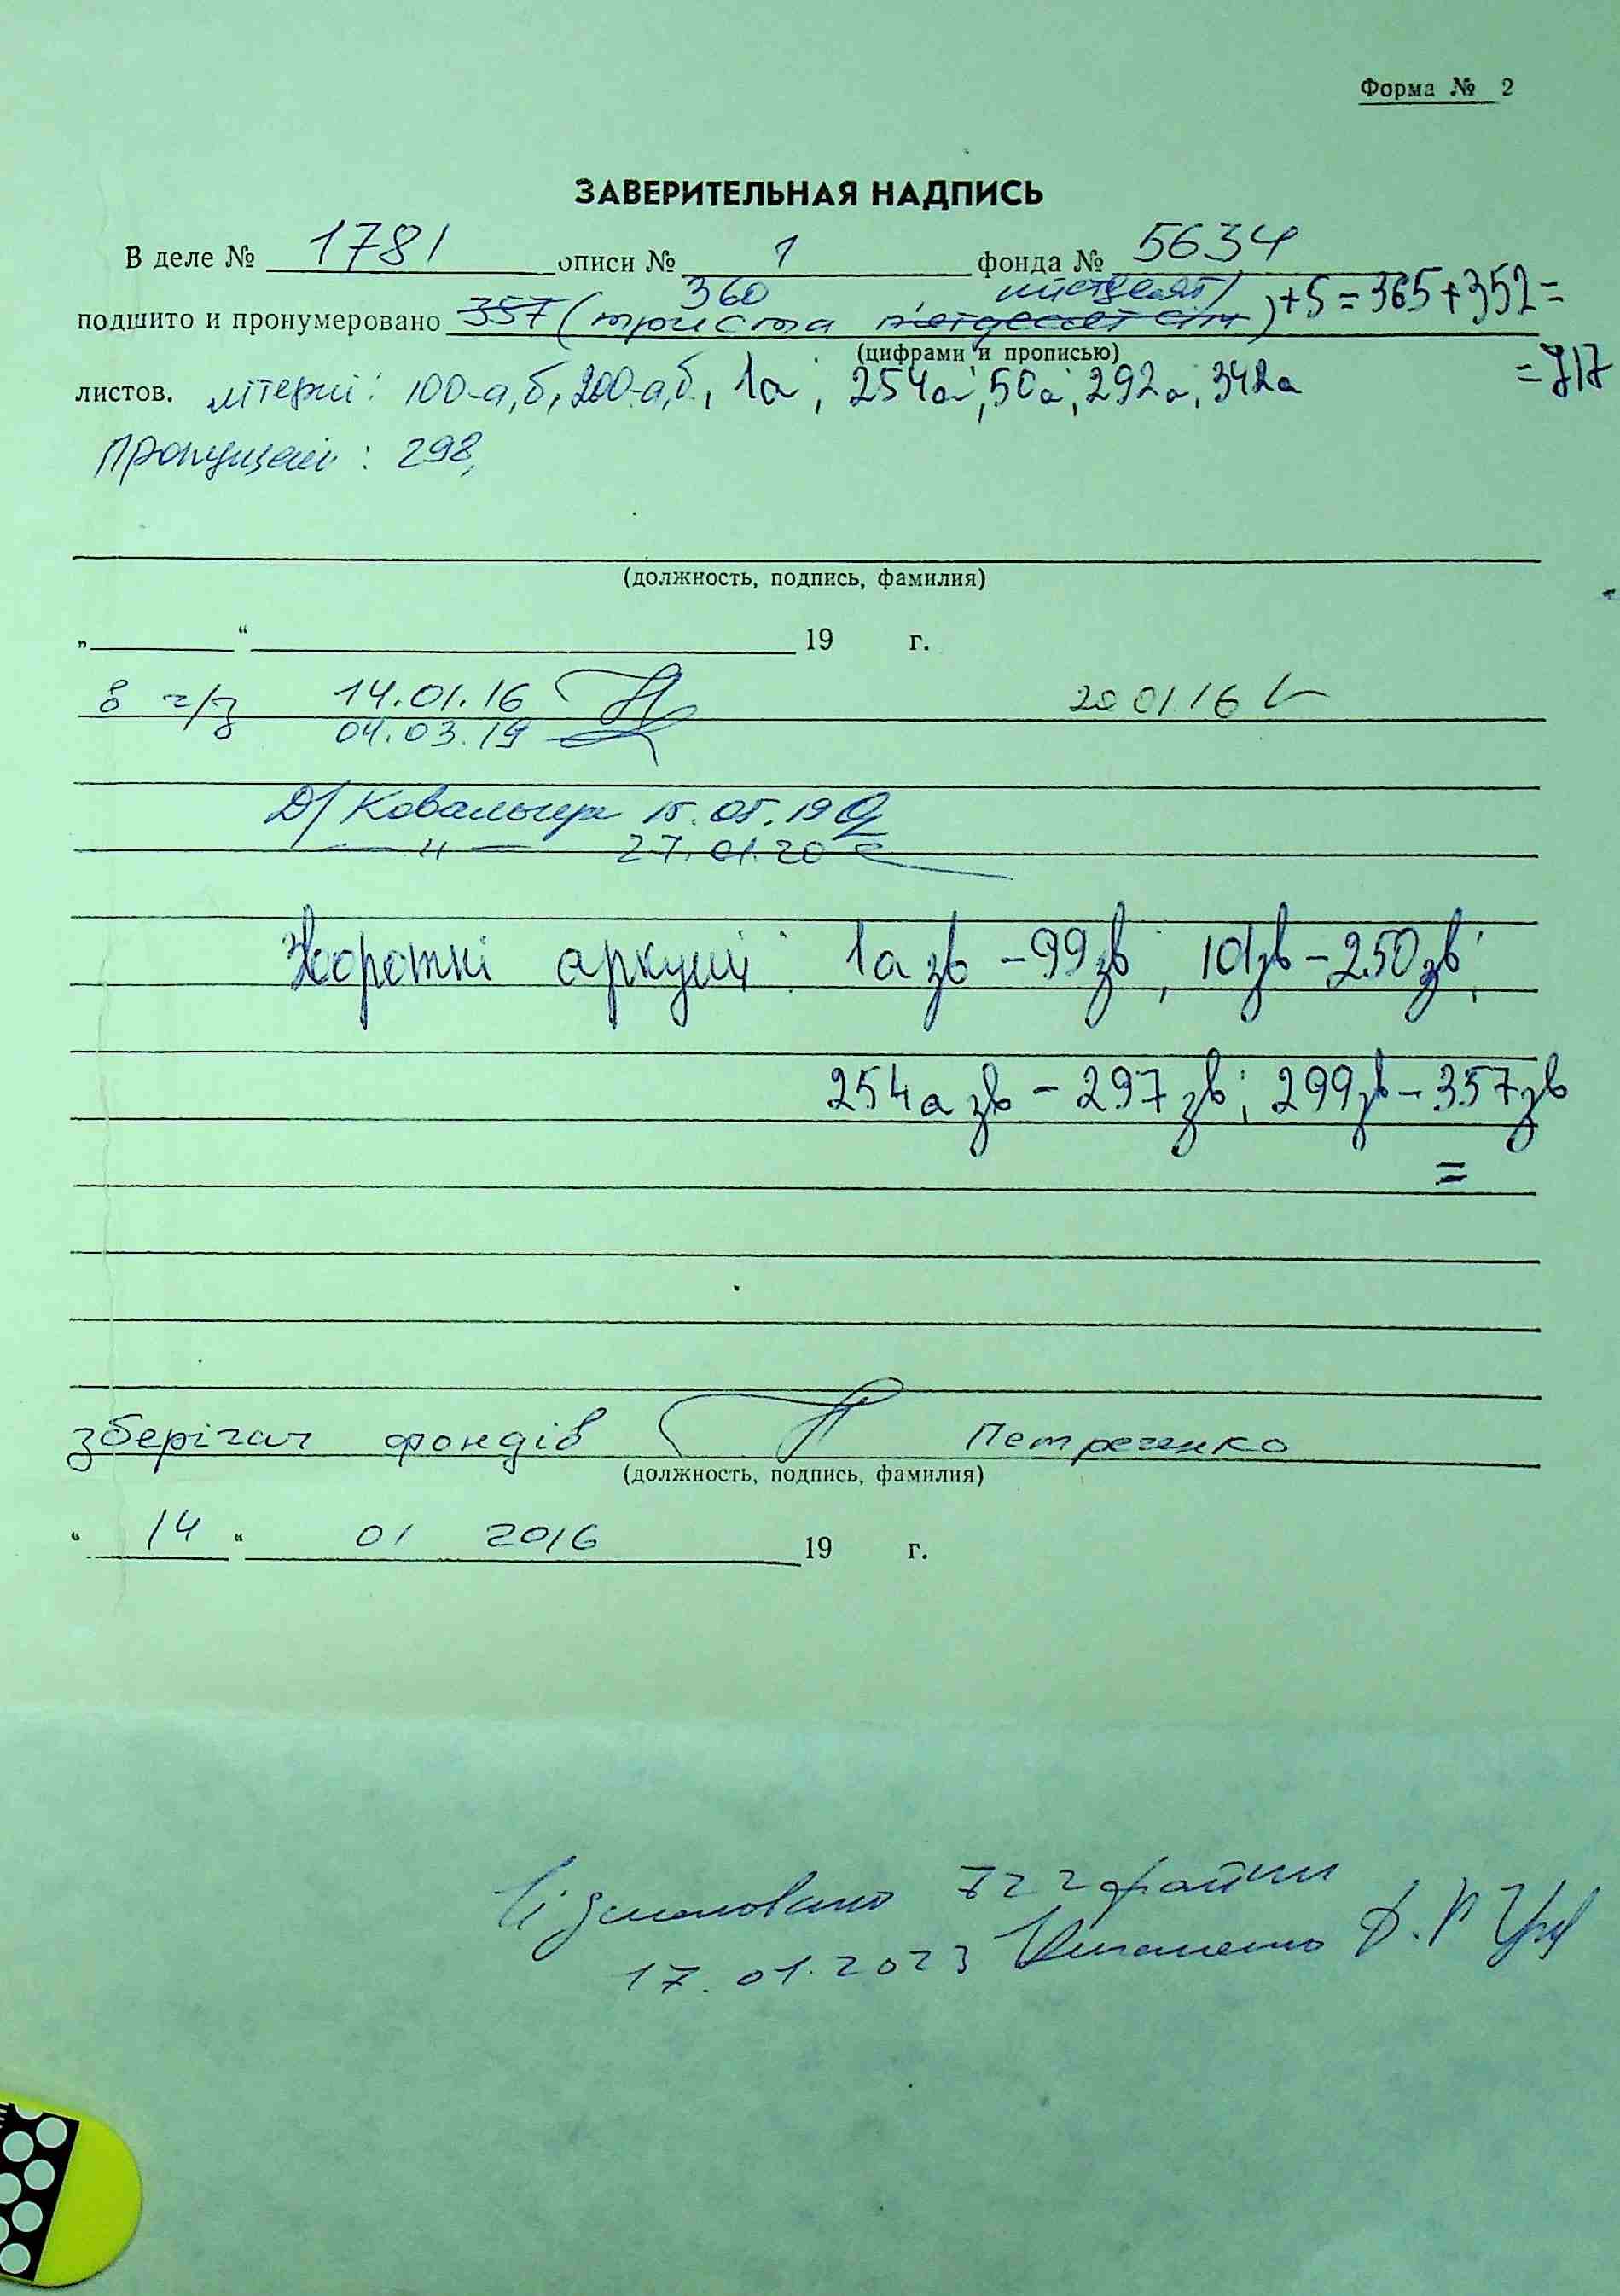 Форма № 2
ЗАВЕРИТЕЛЬНАЯ НАДПИСЬ
В деле № 1781 описи № 1 фонда № 5634
360 шістдесят)
подшито и пронумеровано 357 (триста п'ятдесят сім) +5=365+352=
(цифрами и прописью)
=717
листов. літерні: 100-а,б, 200-а,б, 1а; 254а; 50а; 292а; 342а
Пропущені: 298,
(должность, подпись, фамилия)
„ “ 19 г.
в ч/з 14.01.16 20 01.16
04.03.19
15.05.19
—"— 27.01.20
Зворотні аркуші: 1а зв – 99 зв; 101зв – 250 зв;
254а зв – 297 зв; 299зв – 357 зв
=
зберігач фондів Петреченко
(должность, подпись, фамилия)
“ 14 “ 01 2016 19 г.
Відскановано 722 файли
17.01.2023